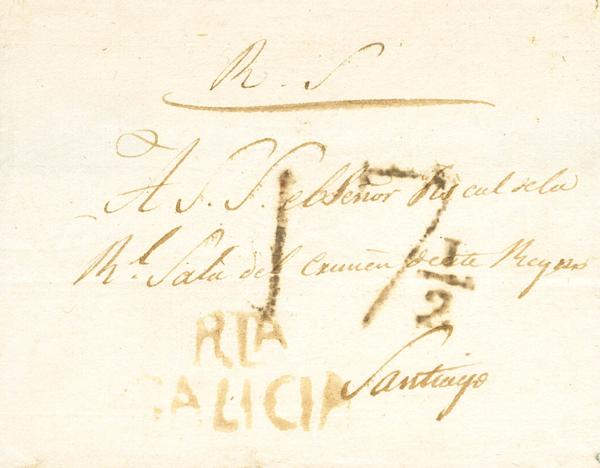 R. S
A S. S. el Señor Fiscal de la
Rl. Sala del Crimen de este Reyno
17 1/2
RIA
GALICIA
Santiago